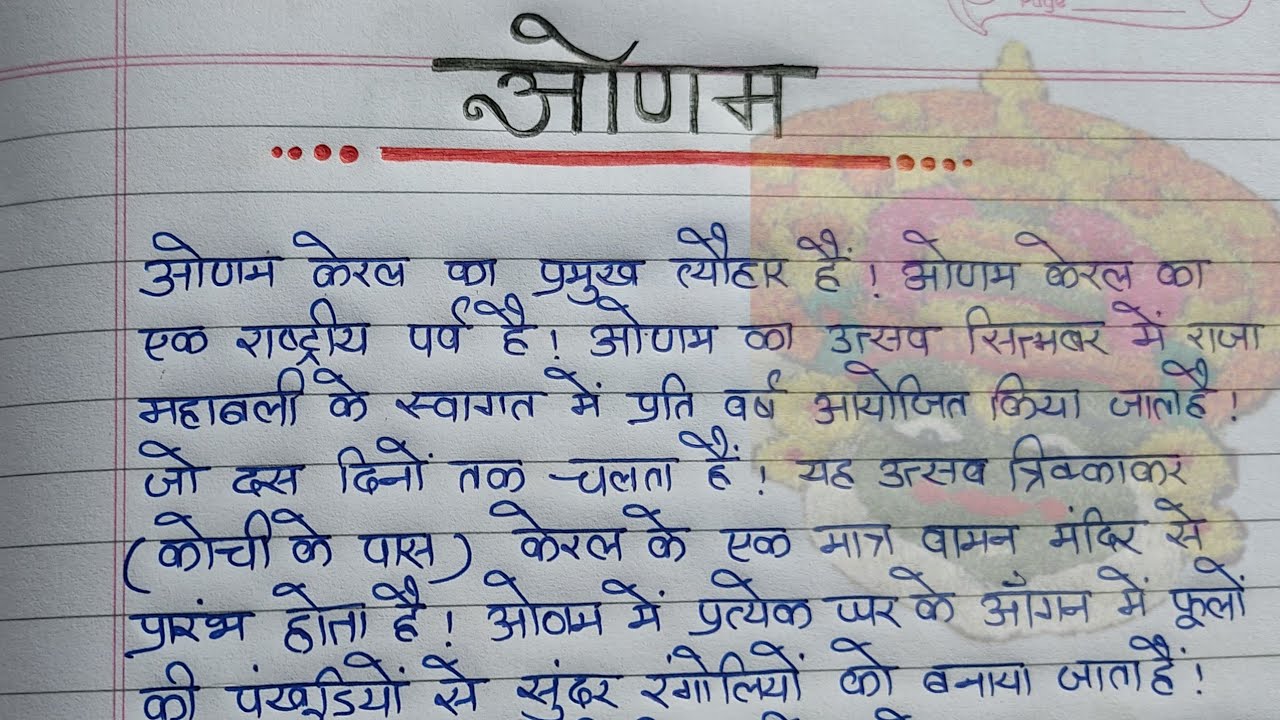 Page
ओणम
ओणम केरल का प्रमुख त्यौहार हैं! ओणम केरल का
एक राष्ट्रीय पर्व है! ओणम का उत्सव सितम्बर में राजा
महाबली के स्वागत में प्रति वर्ष आयोजित किया जाता है!
जो दस दिनों तक चलता हैं! यह उत्सव त्रिक्काकर
(कोची के पास) केरल के एक मात्र वामन मंदिर से
प्रारंभ होता है! ओणम में प्रत्येक घर के आँगन में फूलों
की पंखूडियों से सुंदर रंगोलियों को बनाया जाता हैं!